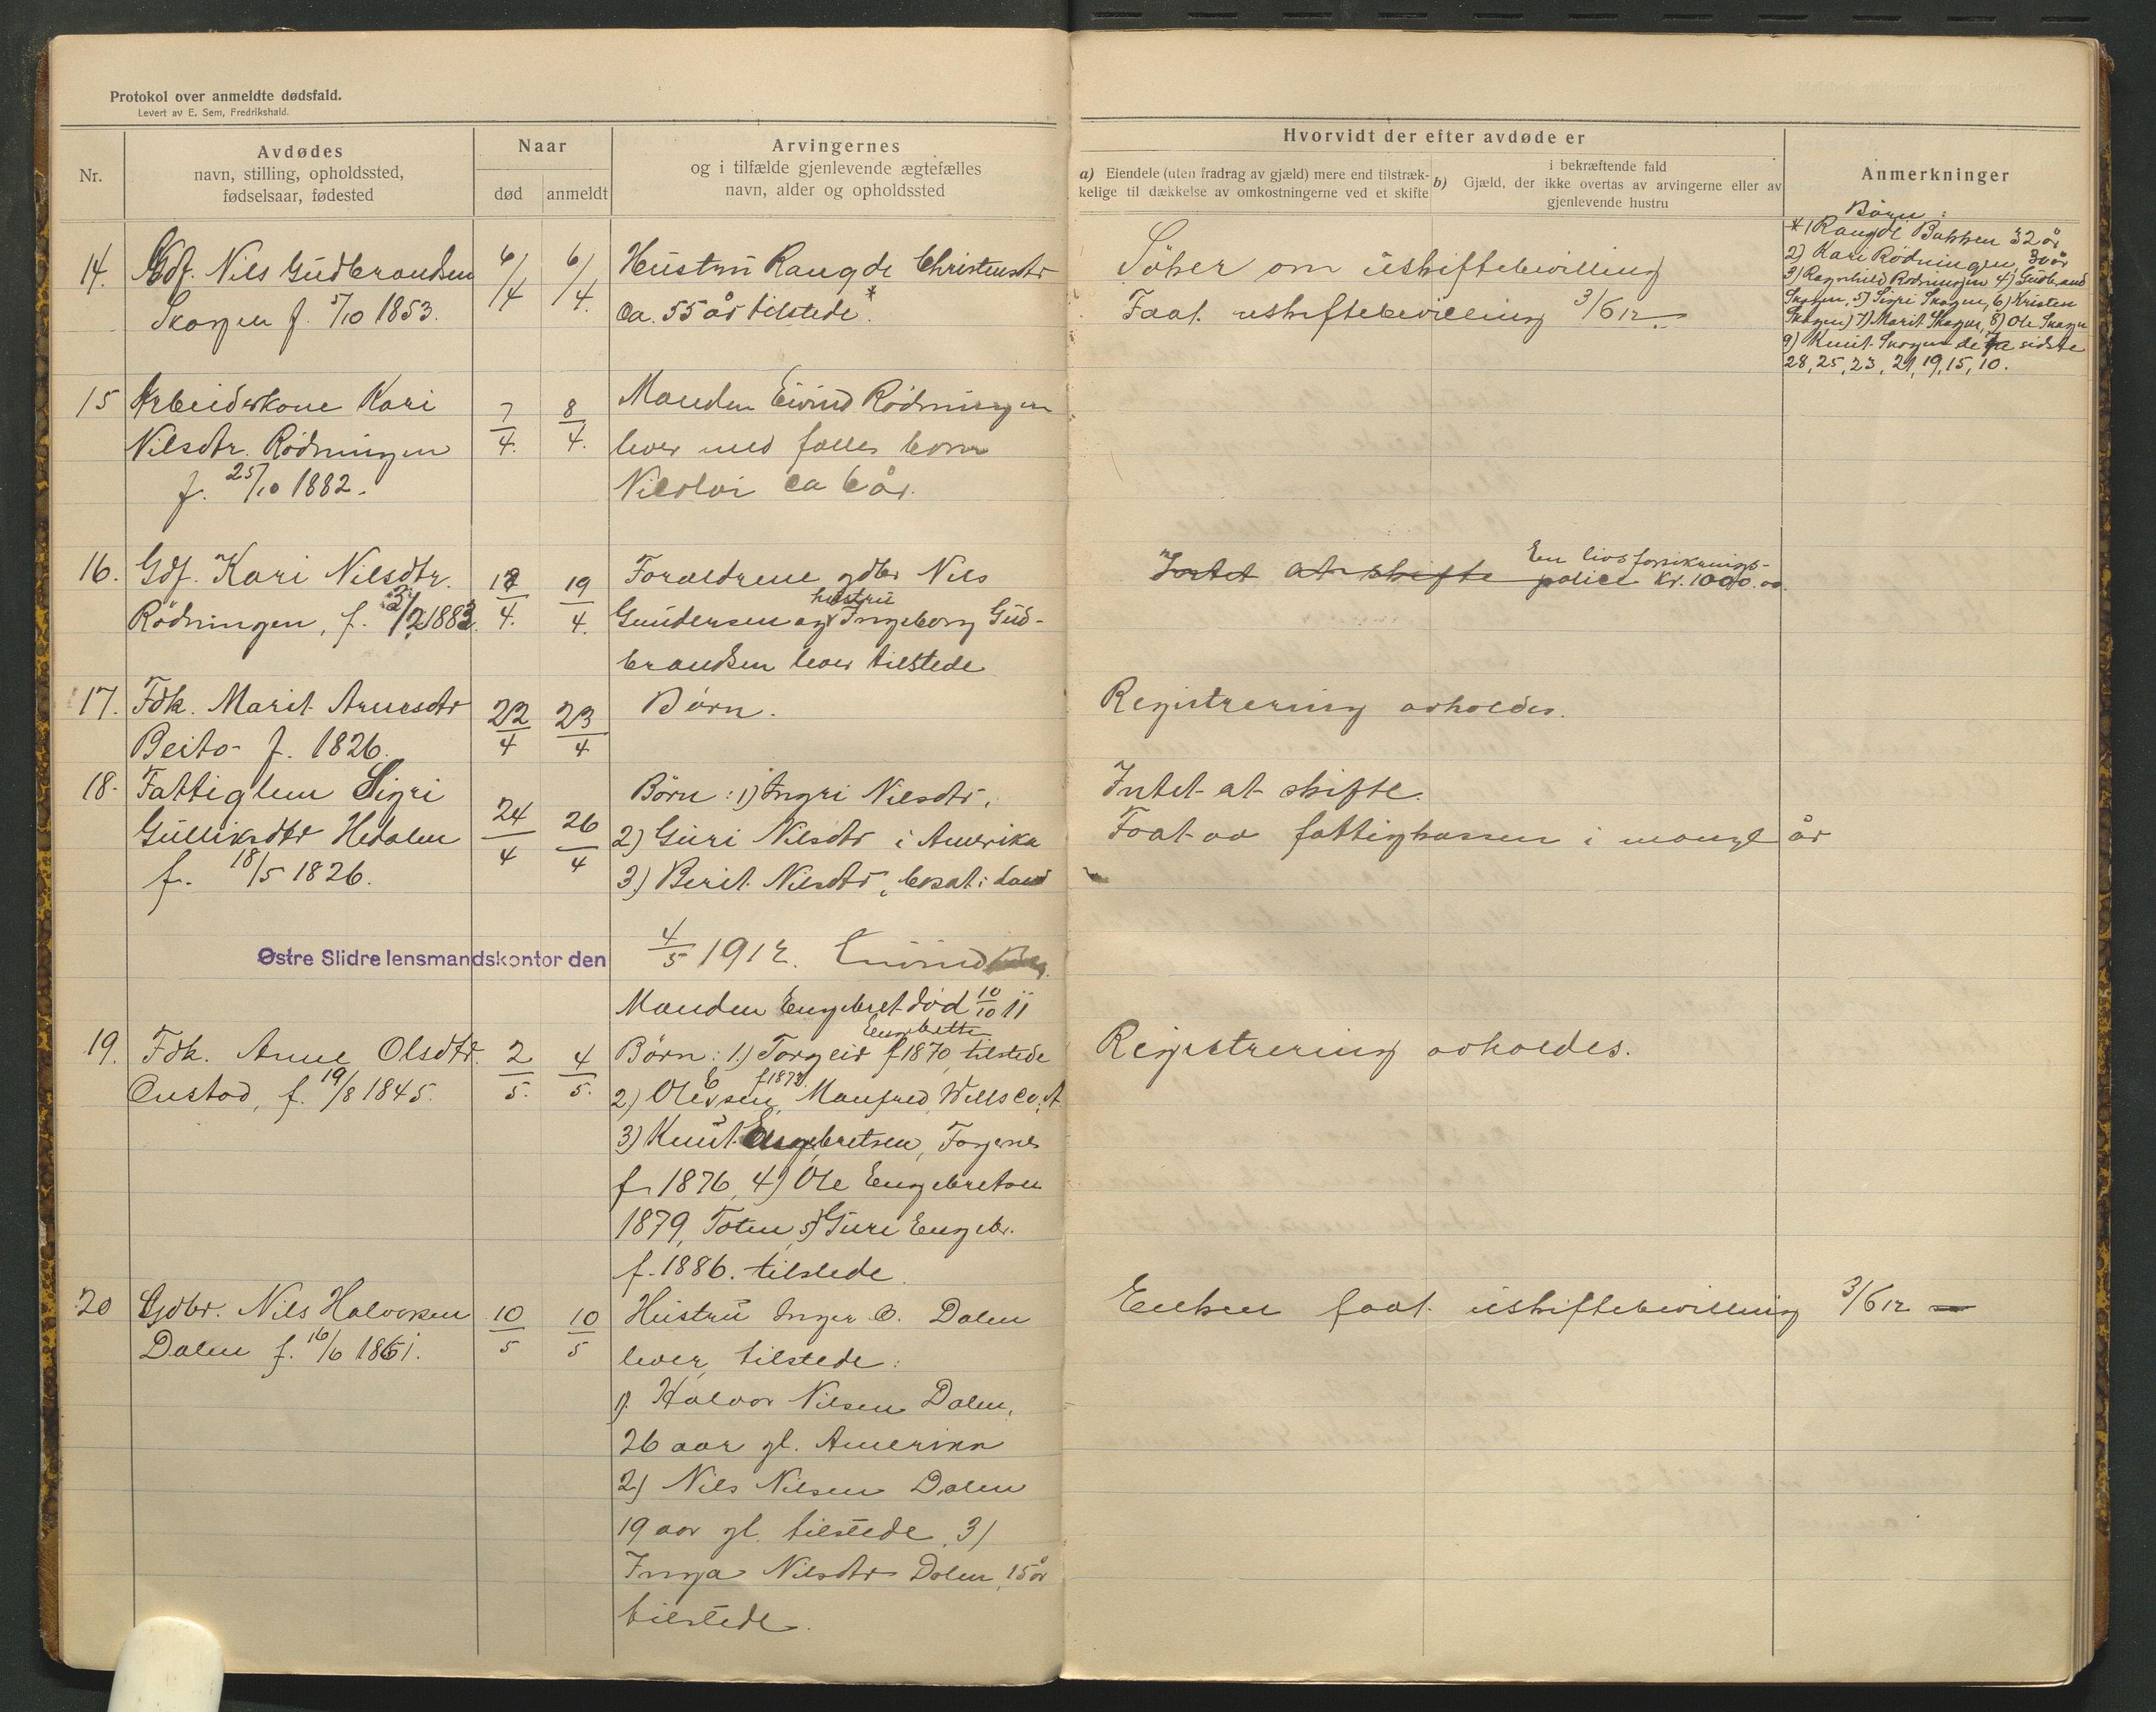 Protokol over anmeldte dødsfald.
Levert av E. Sem, Fredrikshald.
Nr.
Avdødes
navn, stilling, opholdssted,
fødselsaar, fødested
Naar
død
anmeldt
Arvingernes
og i tilfælde gjenlevende ægtefælles
navn, alder og opholdssted
14.
Gdf. Nils Gudbrandsen
Skogen f. 5/10 1853.
6/4
6/4.
Hustru Rangdi Christensdtr
Ca. 55 år tilstede.*
15
Arbeiderkone Kari
Nilsdtr. Rødningen
f. 25/10 1882.
7/4.
8/4.
Manden Eivind Rødningen
lever med fælles barn
Nicolai ca 6 år.
16.
Gdf. Kari Nilsdtr.
Rødningen, f. 1883.
4.
19/4.
Forældrene gdbr Nils
hustru
Gundersen og Ingeborg Gud-
brandsen lever tilstede
17.
Fdk. Marit Arnesdtr
Beito f. 1826.
22/4
23/4
Børn.
18.
Fattiglem Sigri
Gulliksdtr Hedalen
f. 18/5 1826.
24/4
26/4
Børn: 1) Ingri Nilsdtr,
2) Guri Nilsdtr i Amerika
3) Berit Nilsdtr, bosat i Land
Østre Slidre lensmandskontor den
4/5 1912.
Manden Engebret død 10/10 11
19.
Fdk. Anne Olsdtr.
f. 19/8 1845.
2/5.
4/5.
Børn: 1) Torgeir f 1870, tilstede
2) Ole E sen, Manfred, Wells Co. A.
3) Knut Engebretsen, Fagernes
f 1876, 4) Ole Engebretsen
1879, Toten, 5) Guri Engebr.
f. 1886. tilstede.
20
Gdbr. Nils Halvorsen
Dalen f. 16/6 1861.
10/5
10/5
Hustru Inger O. Dalen
lever, tilstede:
1). Halvor Nilsen Dalen,
26 aar gl. Amerika
2) Nils Nilsen Dalen
19 aar gl. tilstede, 3)
Inga Nilsdtr Dalen, 15 år
tilstede.
Hvorvidt der efter avdøde er
a) Eiendele (uten fradrag av gjæld) mere end tilstræk-
kelige til dækkelse av omkostningerne ved et skifte
b)
i bekræftende fald
Gjæld, der ikke overtas av arvingerne eller av
gjenlevende hustru
Anmerkninger
Söker om uskiftebevilling
Faat uskiftebevilling 3/6 12.
Børn:
*1 Rangdi Bakken 32 år
2) Kari Rødningen, 30 år
3) Ragnhild Rødningen 4) Gudbrand
Skogen, 5) Sigri Skogen, 6) Kristen
Skogen, 7) Marit Skogen, 8) Ole Skogen
9) Knut Skogen de 7 sidste
28, 25, 23, 21, 19, 15, 10.
Intet at skifte
En livsforsiknings-
police Kr. 1000.00
Registrering avholdes.
Intet at skifte.
Faat av fattigkassen i mange år
Registrering avholdes.
Enken faat uskiftebevilling 3/6 12